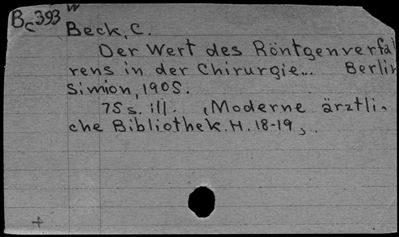 W
Bc393
Beck, C.
Der Wert des Röntgenverfah
rens in der Chirurgie... Berlin
Simion, 1905.
75 s. ill. (Moderne ärztli-
che Bibliothek. H. 18-19).